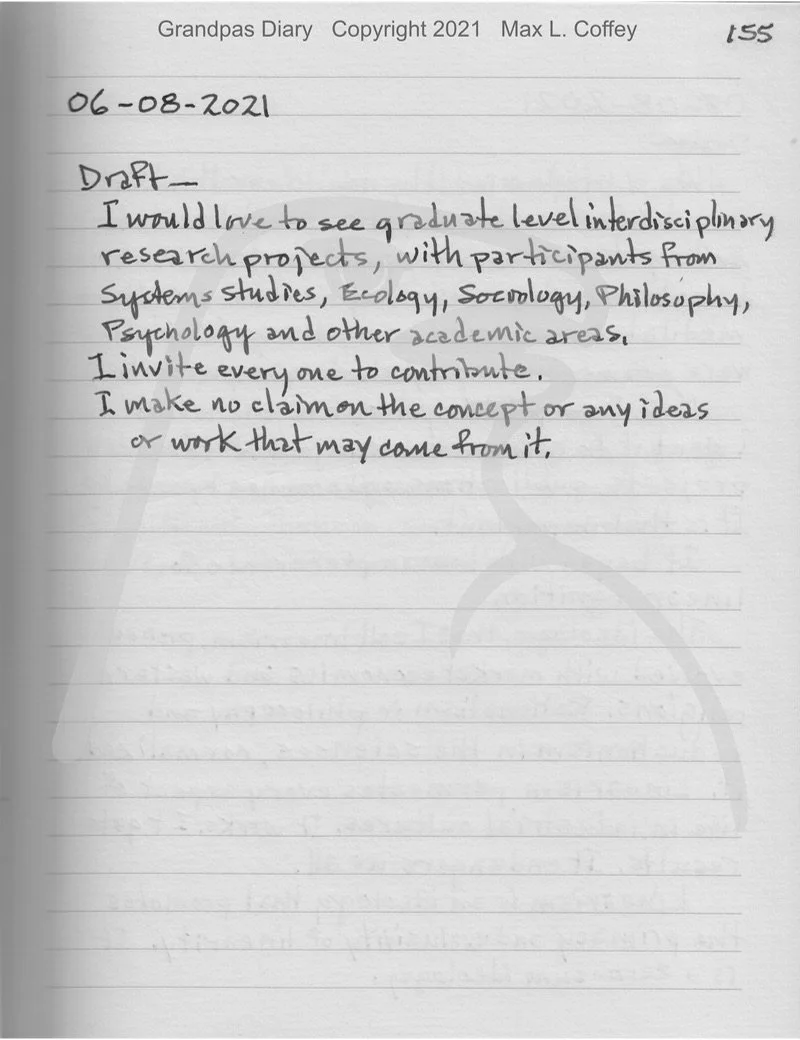 Grandpas Diary Copyright 2021 Max L. Coffey
155
06-08-2021
Draft—
I would love to see graduate level interdisciplinary
research projects, with participants from
Systems studies, Ecology, Sociology, Philosophy,
Psychology and other academic areas.
I invite everyone to contribute.
I make no claim on the concept or any ideas
or work that may come from it.